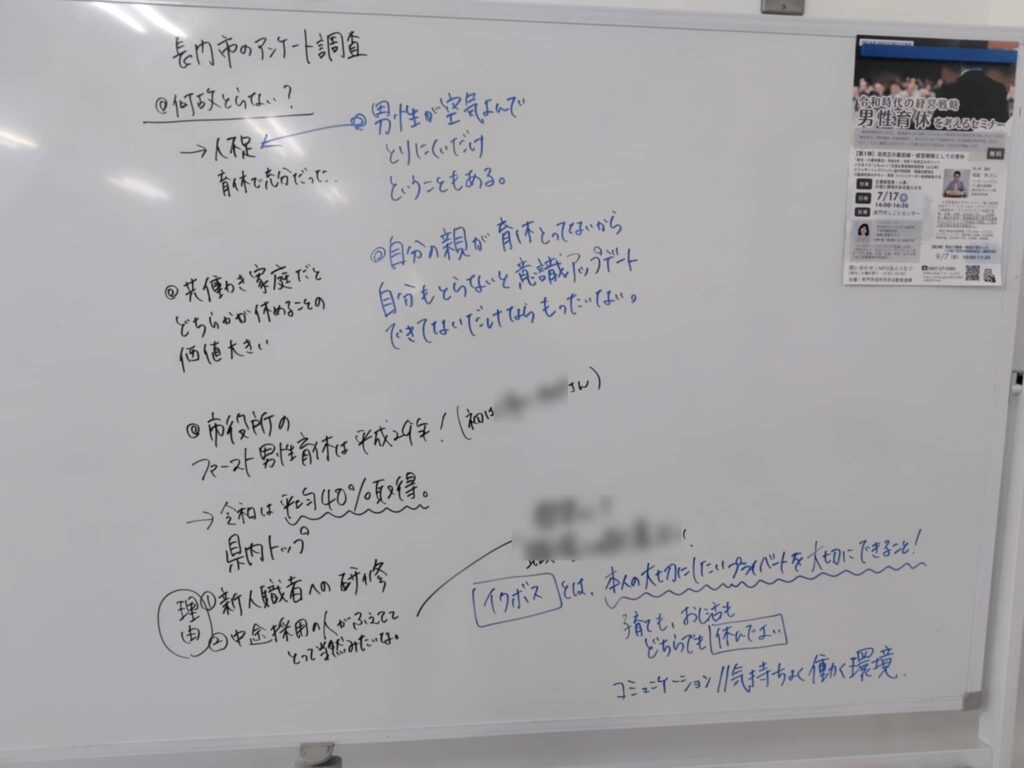 長門市のアンケート調査
◎何故とらない？
→人不足
育休で充分だった..
◎男性が空気よんで
とりにくいだけ
ということもある。
◎共働き家庭だと
どちらかが休めることの
価値大きい
◎自分の親が育休とってないから
自分もとらないと意識アップデート
できてないだけならもったいない。
◎市役所の
ファースト男性育休は平成29年！(初は
さん)
→令和は平均40%取得。
県内トップ
理由
①新人職者への研修
②中途採用の人がふえてて
とって当然みたいな。
イクボスとは、本人の大切にしたいプライベートを大切にできること！
子育ても、おし活も
どちらでも休んでよい
コミュニケーション//気持ちよく働く環境.
令和時代の経営戦略
男性育休を考えるセミナー
無料
7/17
14:00-16:30
長門市しごとセンター
9/7